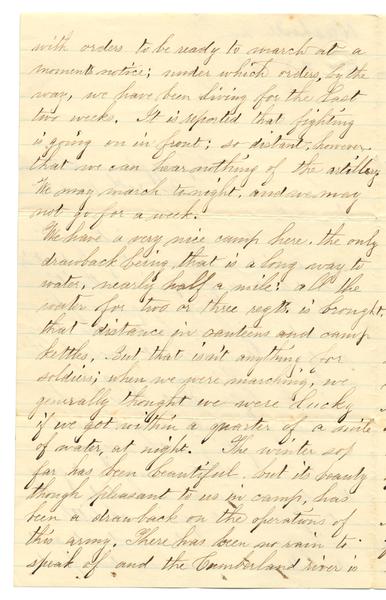 with orders to be ready to march at a
moments notice; under which orders, by the
way, we have been living for the last
two weeks. It is reported that fighting
is going on in front; so distant, however
that we can hear nothing of the artillery
We may march to night, and we may
not go for a week.
We have a very nice camp here, the only
drawback being, that is a long way to
water, nearly half a mile: all the
water for two or three regts. is brought
that distance in canteens and camp
kettles. But that isn't anything for
soldiers; when we were marching, we
generally thought we were lucky
if we get within a quarter of a mile
of water, at night. The winter so
far has been beautiful, but its beauty
though pleasant to us in camp, has
been a drawback on the operations of
this army. There has been no rain to
speak of and the Cumberland river is